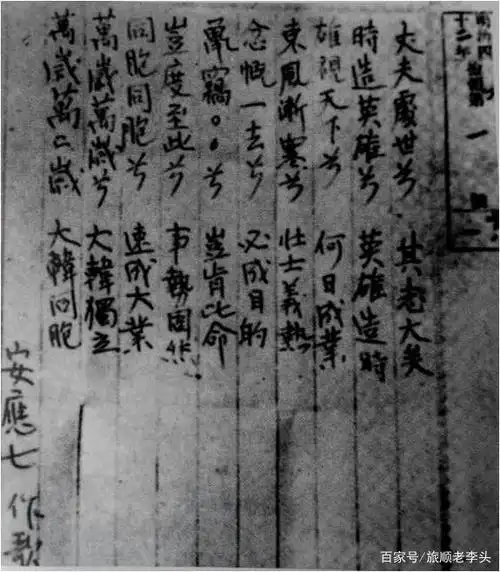 明治四
十二年
丈夫處世兮 其志大矣
時造英雄兮 英雄造時
雄視天下兮 何日成業
東風漸寒兮 壮士義熱
念慨一去兮 必成目的
鼠竊○○兮 豈肯比命
豈度至此兮 事勢固然
同胞同胞兮 速成大業
萬歲萬歲兮 大韓獨立
萬歲萬々歲 大韓同胞
安應七 作歌
百家号/旅顺老李头